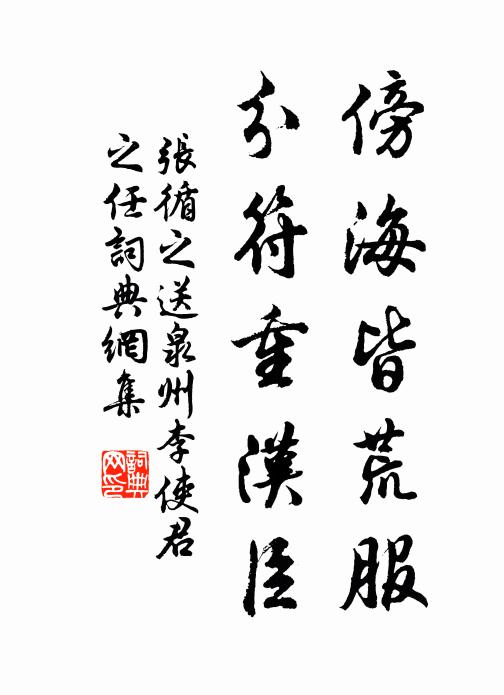 傍海皆荒服
分符重漢臣
張循之送泉州李使君
之任詞典網集
詞典
网印